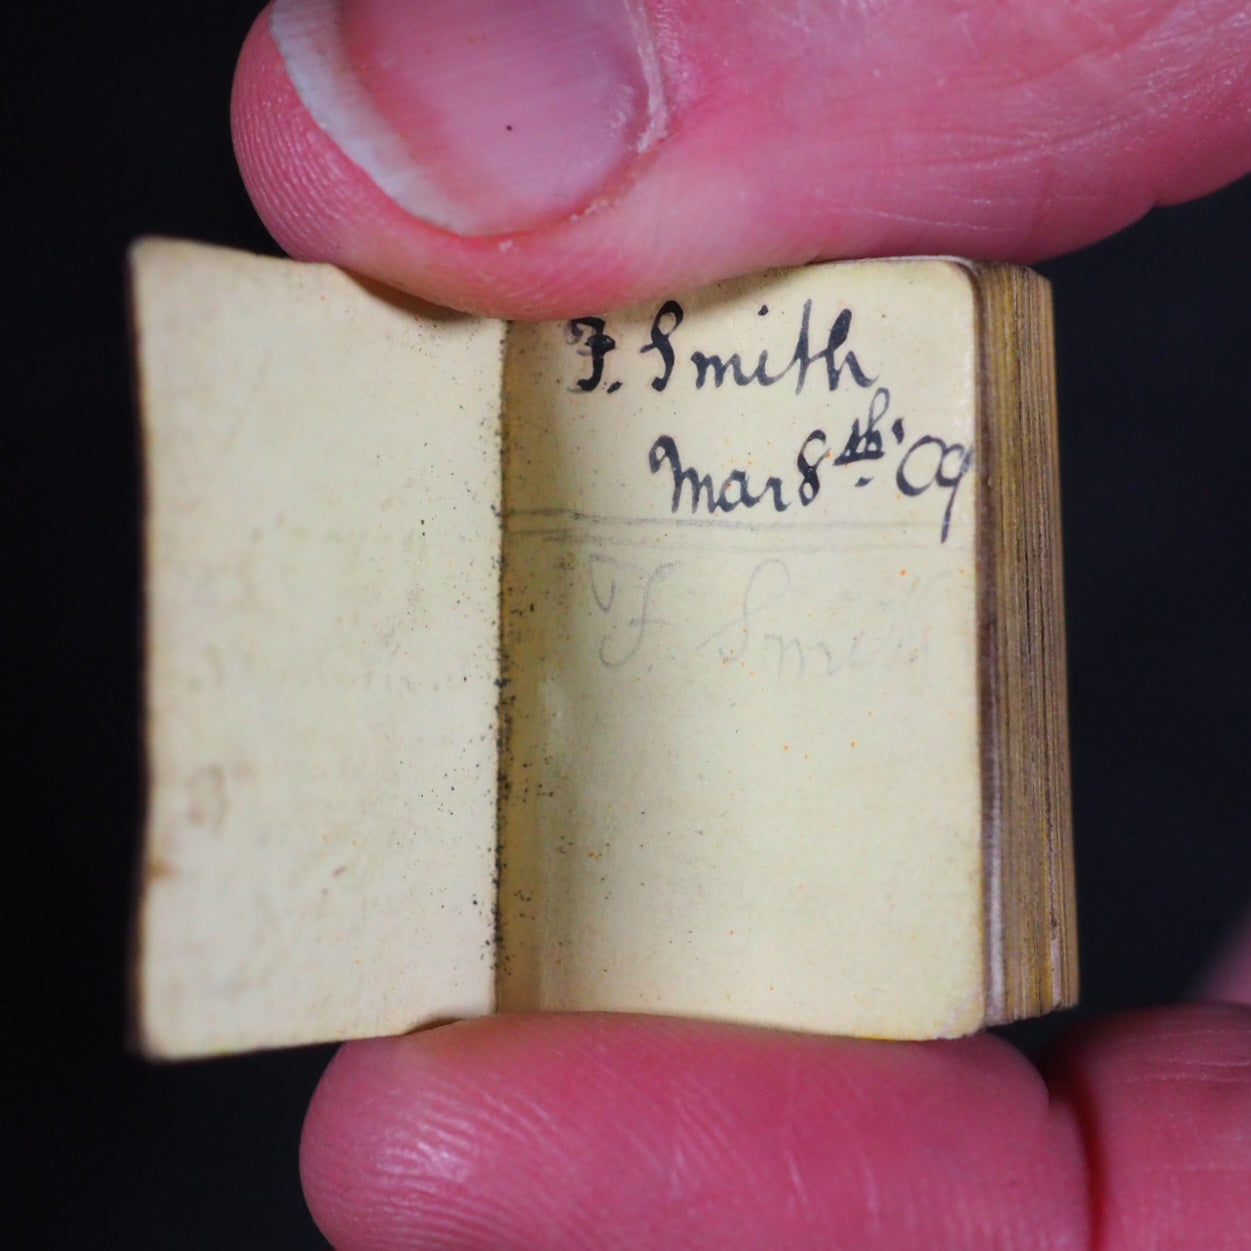 F. Smith
Mar 8th. '09
F Smith